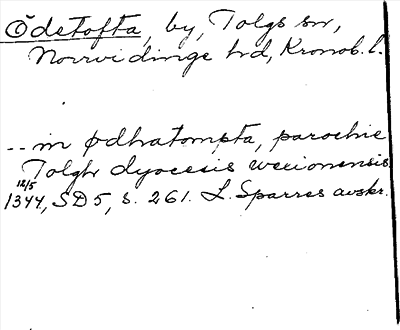 Ödetofta, by, Tolgs sn,
Norrvidinge hd, Kronob. l.
-- in ødhatompta, parochie
Tolghr dyocesis wexionensis
12/5
1344, SD 5, s. 261. L. Sparres avskr.